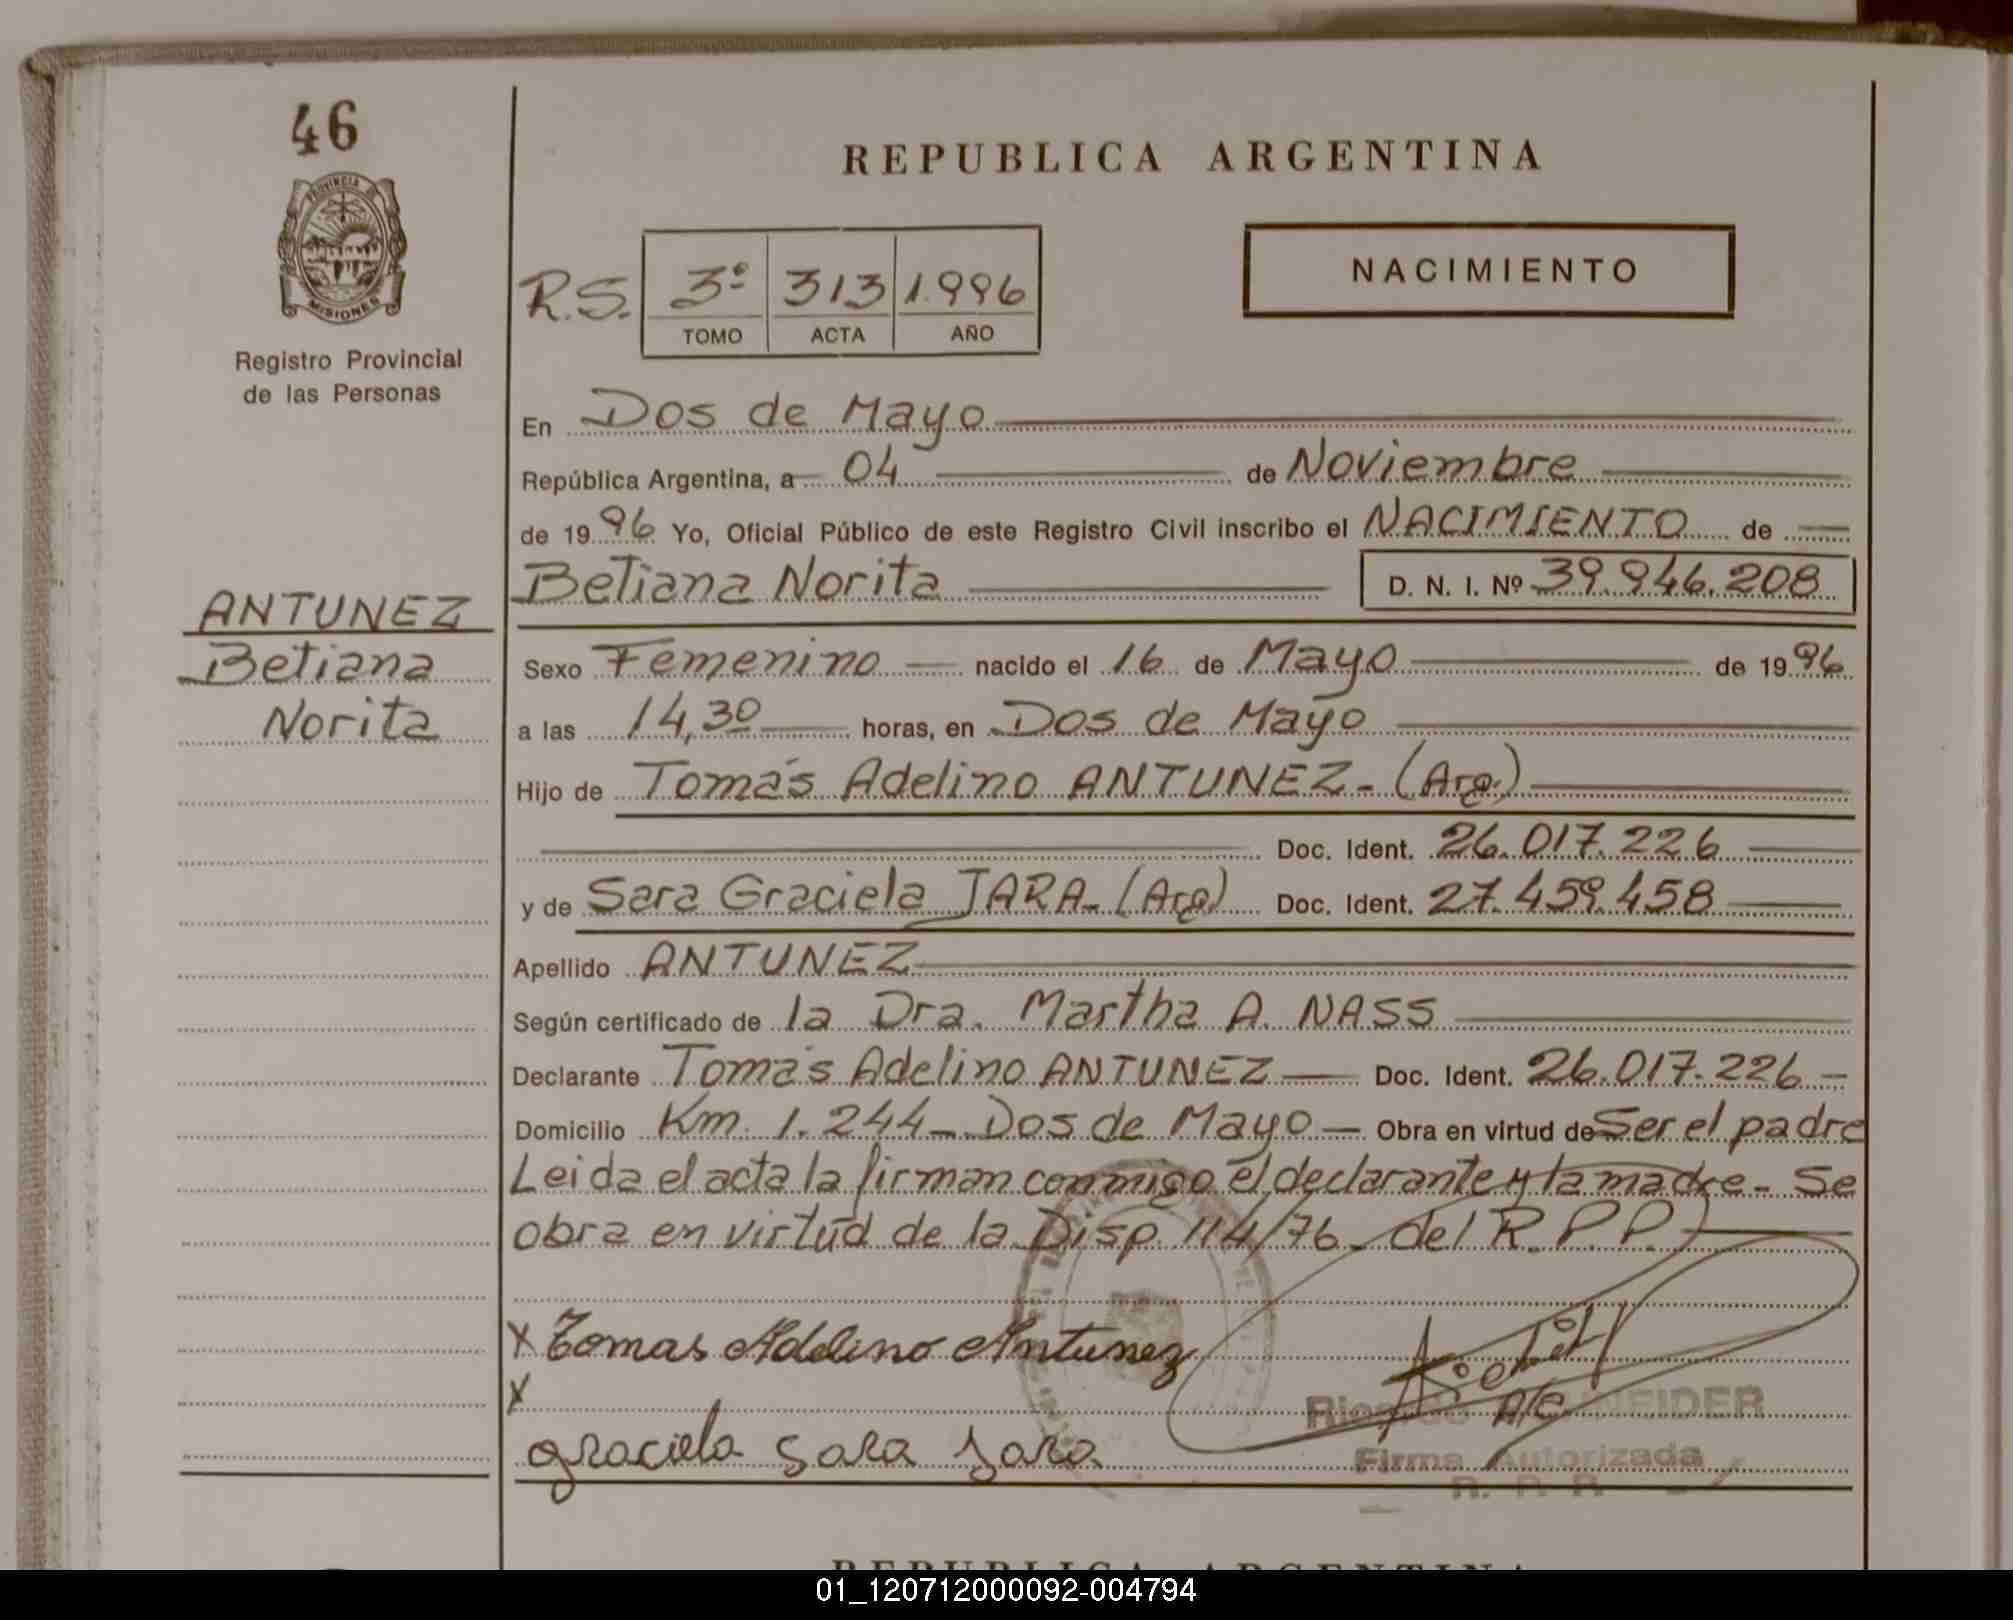 46
REPUBLICA ARGENTINA
PROVINCIA DE
MISIONES
Registro Provincial
de las Personas
R.S. 3º 313 1.996
TOMO ACTA AÑO
NACIMIENTO
En Dos de Mayo
República Argentina, a 04 de Noviembre
de 1996 Yo, Oficial Público de este Registro Civil inscribo el NACIMIENTO de
Betiana Norita D. N. I. Nº 39.946.208
ANTUNEZ
Betiana
Norita
Sexo Femenino nacido el 16 de Mayo de 1996
a las 14,30 horas, en Dos de Mayo
Hijo de Tomás Adelino ANTUNEZ - (Arg.)
Doc. Ident. 26.017.226
y de Sara Graciela JARA - (Arg) Doc. Ident. 27.459.458
Apellido ANTUNEZ
Según certificado de la Dra. Martha A. NASS
Declarante Tomás Adelino ANTUNEZ Doc. Ident. 26.017.226
Domicilio Km. 1.244 - Dos de Mayo Obra en virtud de Ser el padre
Leida el acta la firman conmigo el declarante y la madre - Se
obra en virtud de la Disp. 114/76 - del R.P.P.
x Tomas Adelino Antunez
x
Graciela Sara Jara
A/C
Firma Autorizada
R. P. P.
REPUBLICA ARGENTINA
01_120712000092-004794